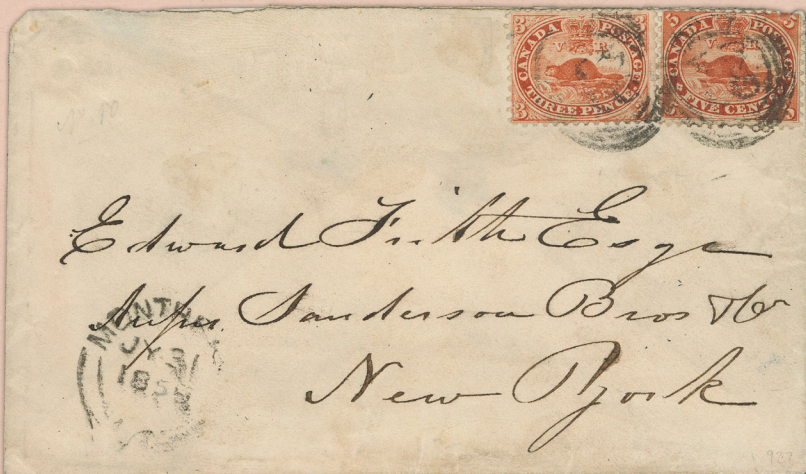 3 CANADA POSTAGE 3
THREE PENCE
3 3
5 CANADA POSTAGE 5
FIVE CEN
5 5
Edward Esqr
Sanderson Bros & Co
New York
MONTR
JY 31
185